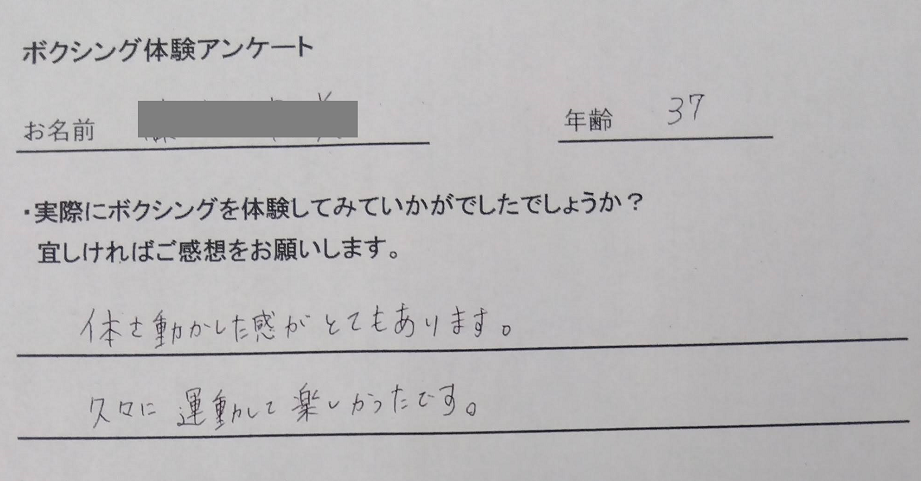 ボクシング体験アンケート
お名前 年齢 37
・実際にボクシングを体験してみていかがでしたでしょうか？
宜しければご感想をお願いします。
体を動かした感がとてもあります。
久々に運動して楽しかったです。